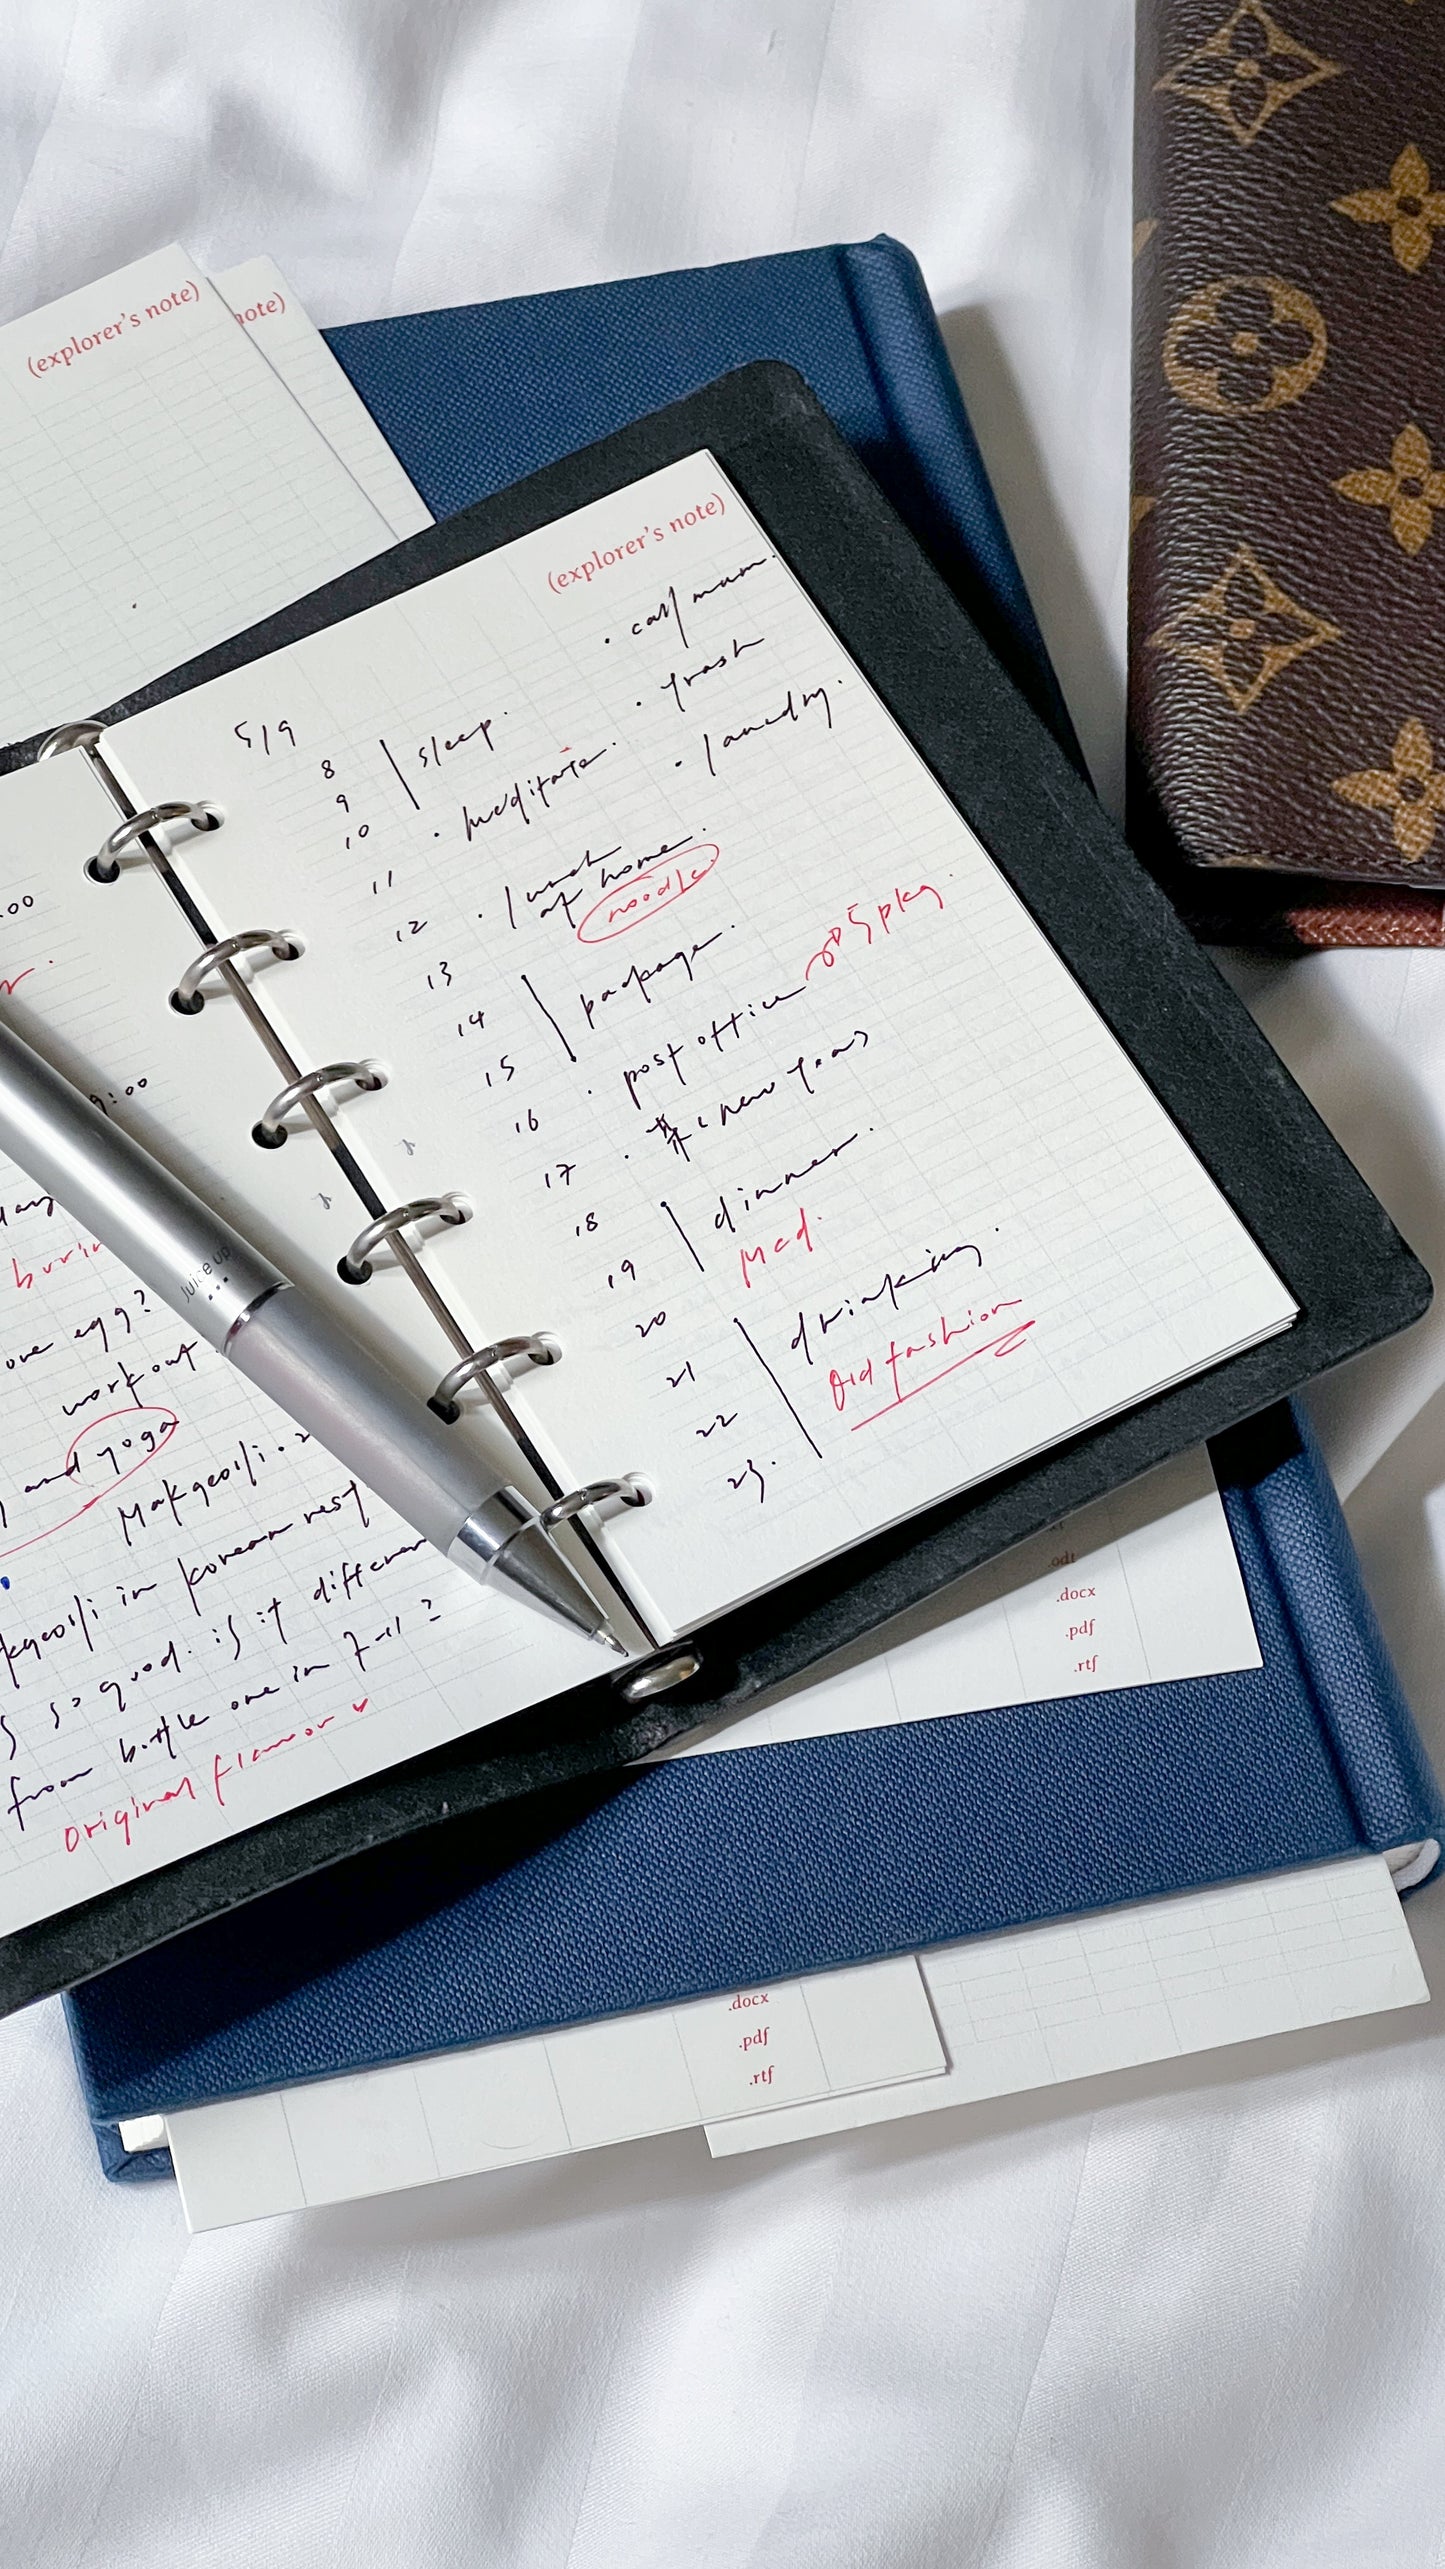 (explorer's note)
note)
(explorer's note)
5/9
· call mum.
· trash
· laundry.
8
9
10
sleep.
· meditate.
11
12 · lunch
at home.
noodle
13
14
15
package.
16 · post office
5 pkg.
17 ·
new years
18
19
dinner.
Mcd.
20
21
22
23.
drinking.
Old fashion
:00
9:00
Juice up
one egg?
workout
and yoga
Makgeolli
in korean rest
so good. is it differen
from bottle one in 7-11?
original flavor
.odt
.docx
.pdf
.rtf
.docx
.pdf
.rtf